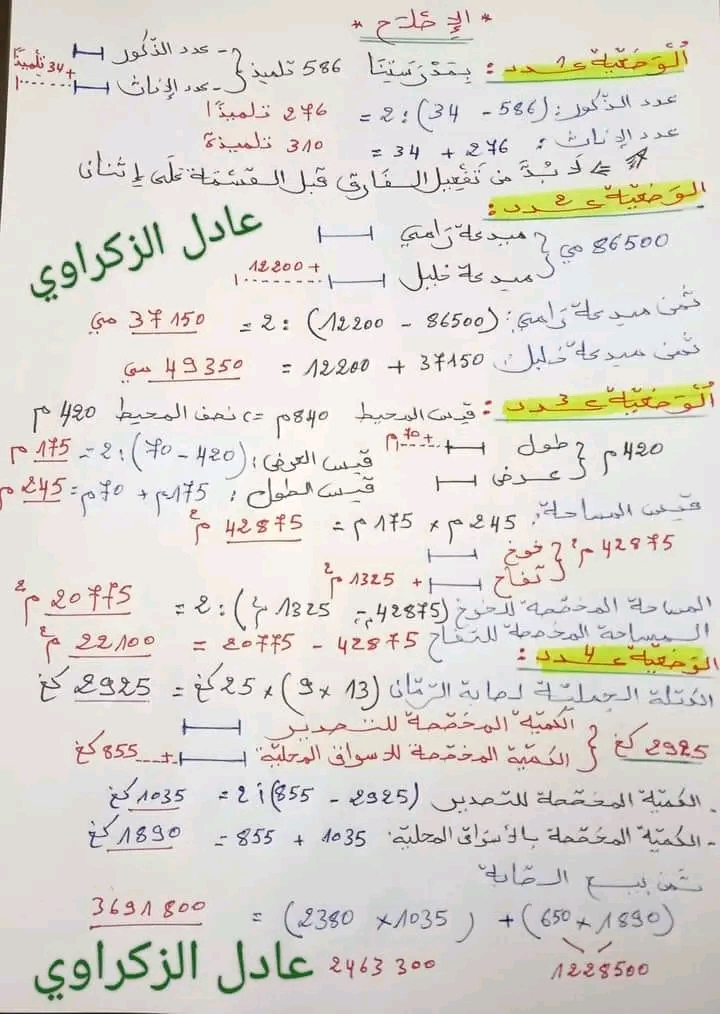 * الإصلاح *
الوضعيّة عـدد 1: بمدرستنا 586 تلميذ { - عدد الذّكور
- عدد الإناث + 34 تلميذًا
عدد الذّكور: (586 - 34) : 2 = 276 تلميذًا
عدد الإناث: 276 + 34 = 310 تلميذة
لا بُدَّ من تَفعيل الفارق قبل القسمة على إثنان
الوَضعيّة عـدد 2:
عادل الزكراوي
86500 مي { ميدعة رامي
ميدعة خليل + 12200
ثمن ميدعة رامي: (86500 - 12200) : 2 = 37150 مي
ثمن ميدعة خليل 37150 + 12200 = 49350 مي
الوضعيّة عـدد 3: قيس المحيط 840م => نصف المحيط 420 م
420 م { طول + 70 م
عرض
قيس العرض: (420 - 70) : 2 = 175 م
قيس الطول: 175م + 70م = 245 م
قيس المساحة: 245 م × 175 م = 42875 م²
42875 م² { خوخ
تفاح + 1325 م²
المساحة المخصّصة للخوخ (42875م² - 1325 م²) : 2 = 20775 م²
المساحة المخصصة للتفاح 42875 - 20775 = 22100 م²
الوَضعيّة عـدد 4:
الكتلة الجمليّة لصابة الرّمّان (13 × 9) × 25 كغ = 2925 كغ
2925 كغ { الكميّة المخصّصة للتصدير
الكميّة المخصّصة للأسواق المحليّة + 855 كغ
. الكميّة المخصّصة للتصدير (2925 - 855) : 2 = 1035 كغ
- الكميّة المخصّصة بالأسواق المحليّة: 1035 + 855 = 1890 كغ
ثمن بيع الصّابة
(1890 × 650) + (1035 × 2380) = 3691800
1228500 2463300
عادل الزكراوي